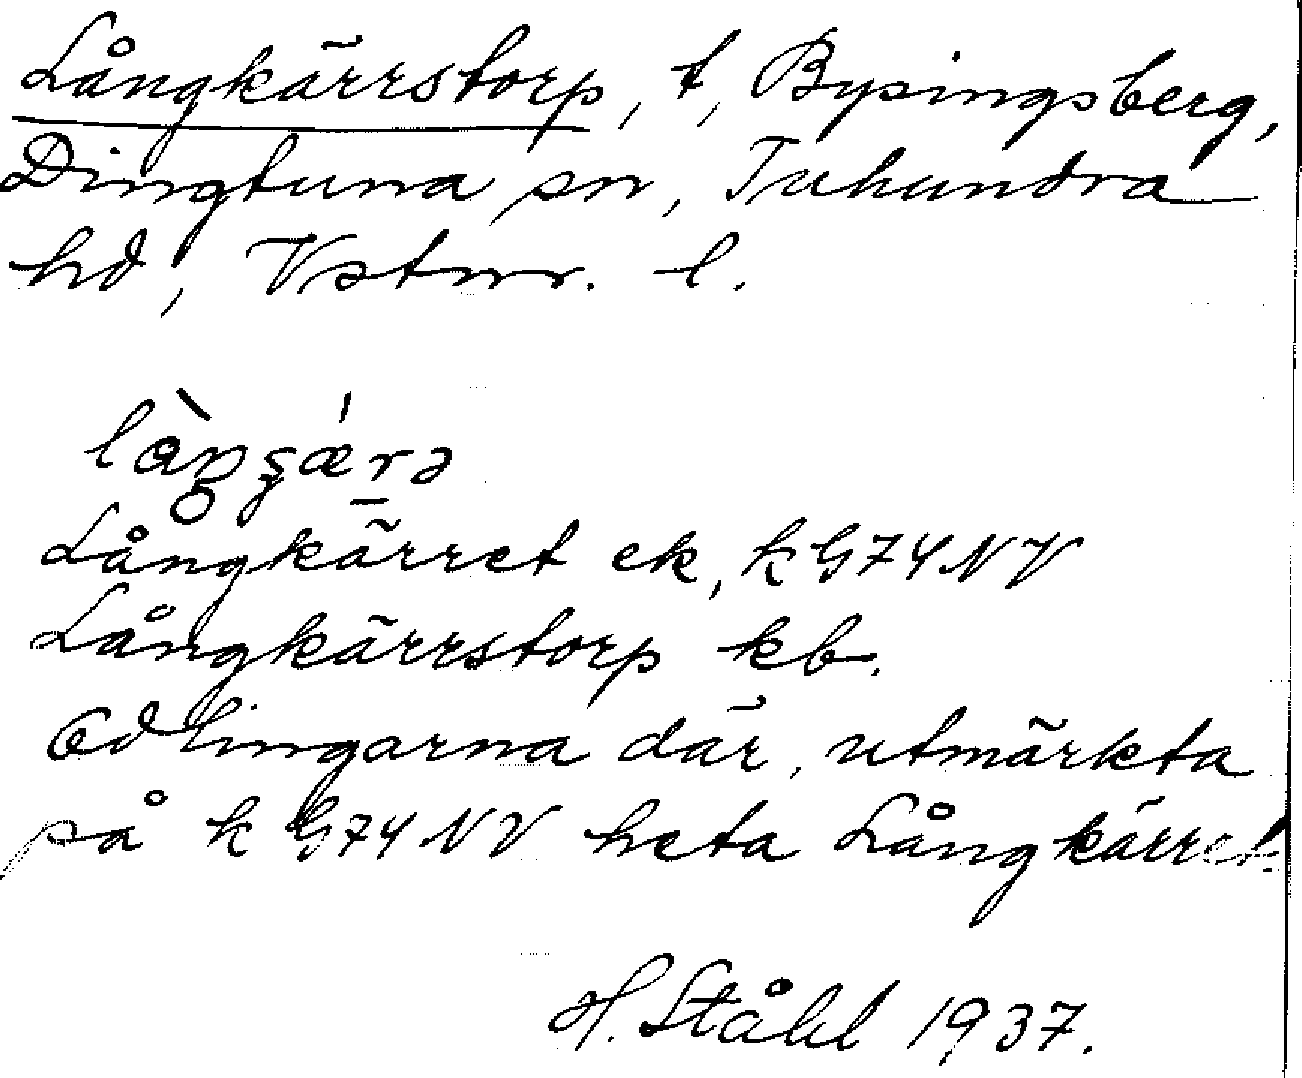 Långkärrstorp, t, Bysingsberg,
Dingtuna sn, Tuhundra
hd, Vstm. l.
Långkärret ek, k G74NV
Långkärrstorp kb.
Odlingarna där, utmärkta
på k G74NV heta Långkärret.
H. Ståhl 1937.